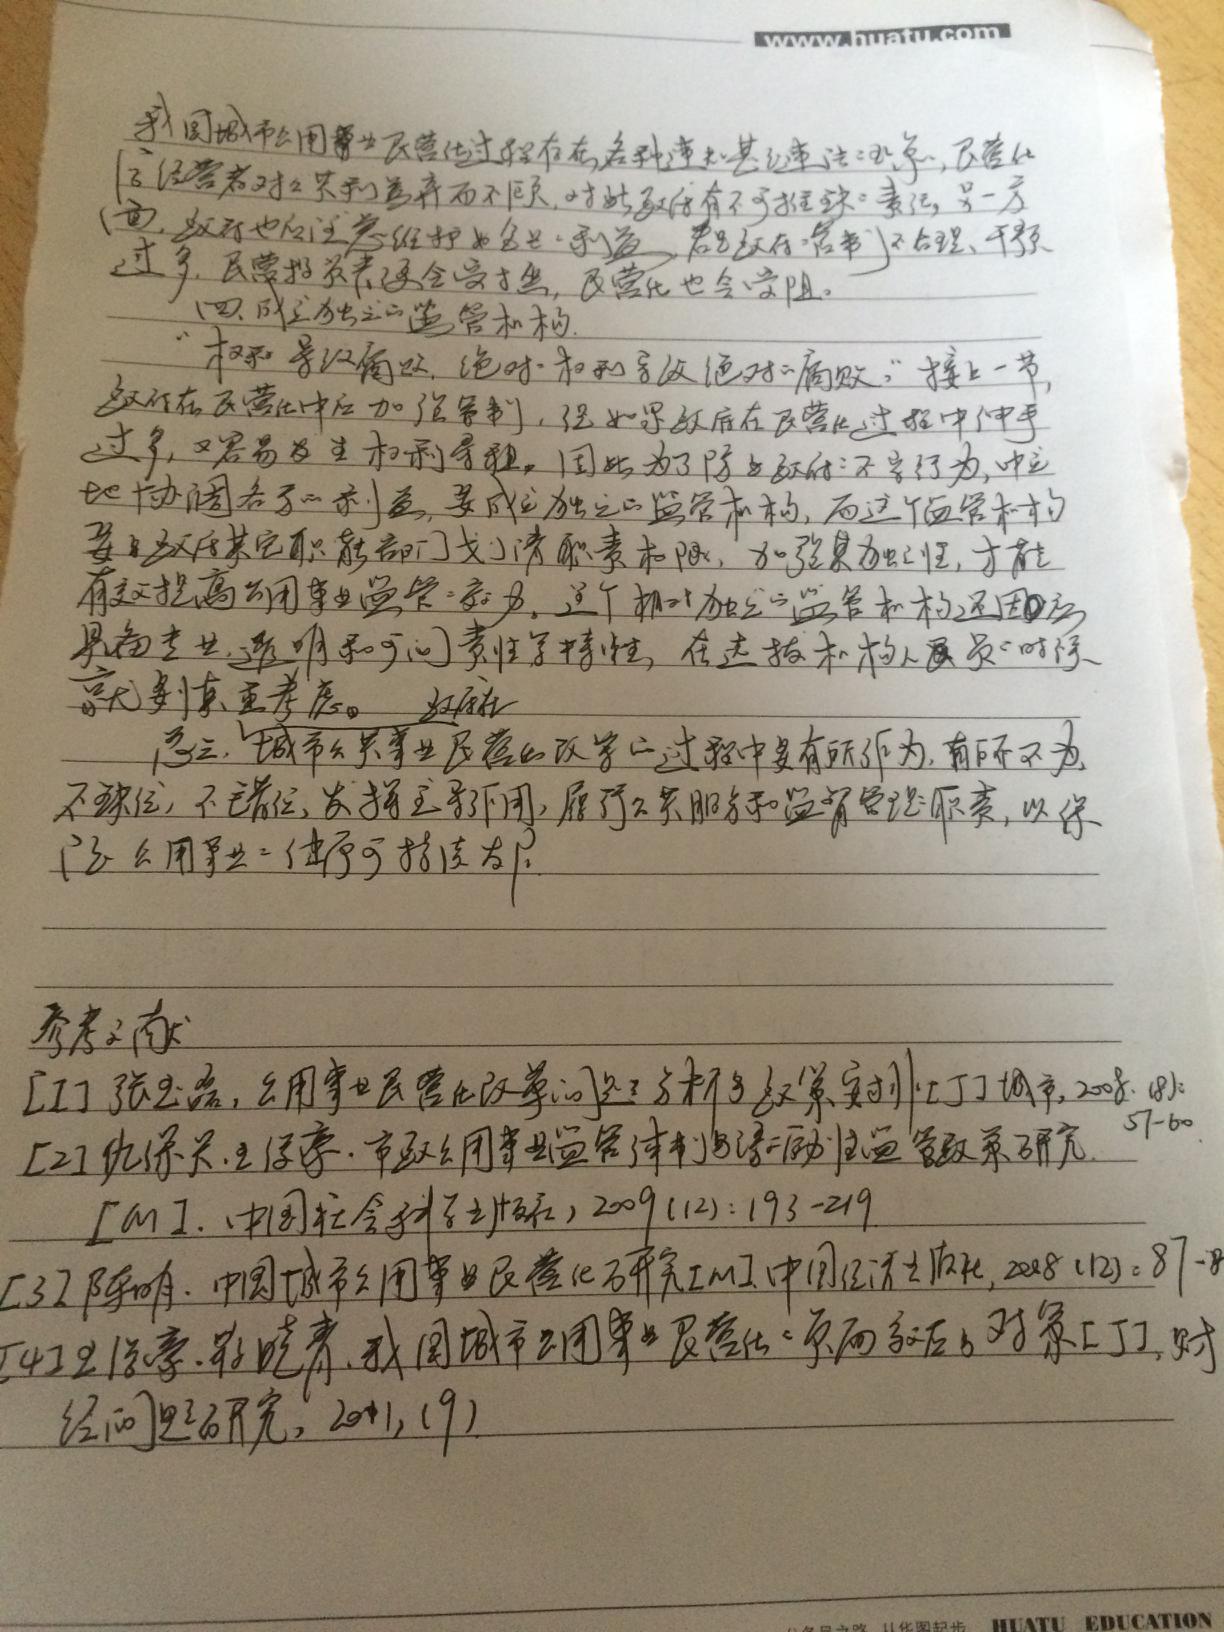 www.huatu.com
我国城市公用事业民营化过程存在各种违规甚至违法现象,民营化
后经营者对公共利益弃而不顾,对此政府有不可推缺的责任。另一方
面,政府也应注意维护好企业的利益,若是政府的管制不合理、干预
过多,民营投资者便会受挫,民营化也会受阻。
四、成立独立的监管机构.
“权利导致腐败,绝对的权利导致绝对的腐败。”接上一节,
政府在民营化中应加强管制,但如果政府在民营化过程中伸手
过多,又容易发生权利寻租。因此为了防止政府的不当行为,中立
地协调各方的利益,要成立独立的监管机构,而这个监管机构
要与政府其它职能部门划清职责权限,加强其独立性,才能
有效提高公用事业监管的效力。这个相对独立的监管机构还因应
具备专业、透明和可问责性等特性,在选拔机构人员的时候
就要慎重考虑。 政府在
总之,城市公共事业民营化改革的过程中要有所作为,有所不为,
不缺位,不错位,发挥主导作用,履行公共服务和监督管理职责,以保
障公用事业的健康可持续发展.
参考文献
[1] 张玉磊,公用事业民营化改革问题分析与政策安排[J]城市,2008.(8):
57-60.
[2] 仇保兴.王俊豪.市政公用事业监管体制与激励性监管政策研究.
[M].中国社会科学出版社,2009(12):193-219
[3] 陈明.中国城市公用事业民营化研究[M]中国经济出版社,2008(12):87-
[4] 王俊豪.蒋晓青.我国城市公用事业民营化的负面效应与对策[J],财
经问题研究,2011,(9)
公务员之路 从华图起步 HUATU EDUCATION